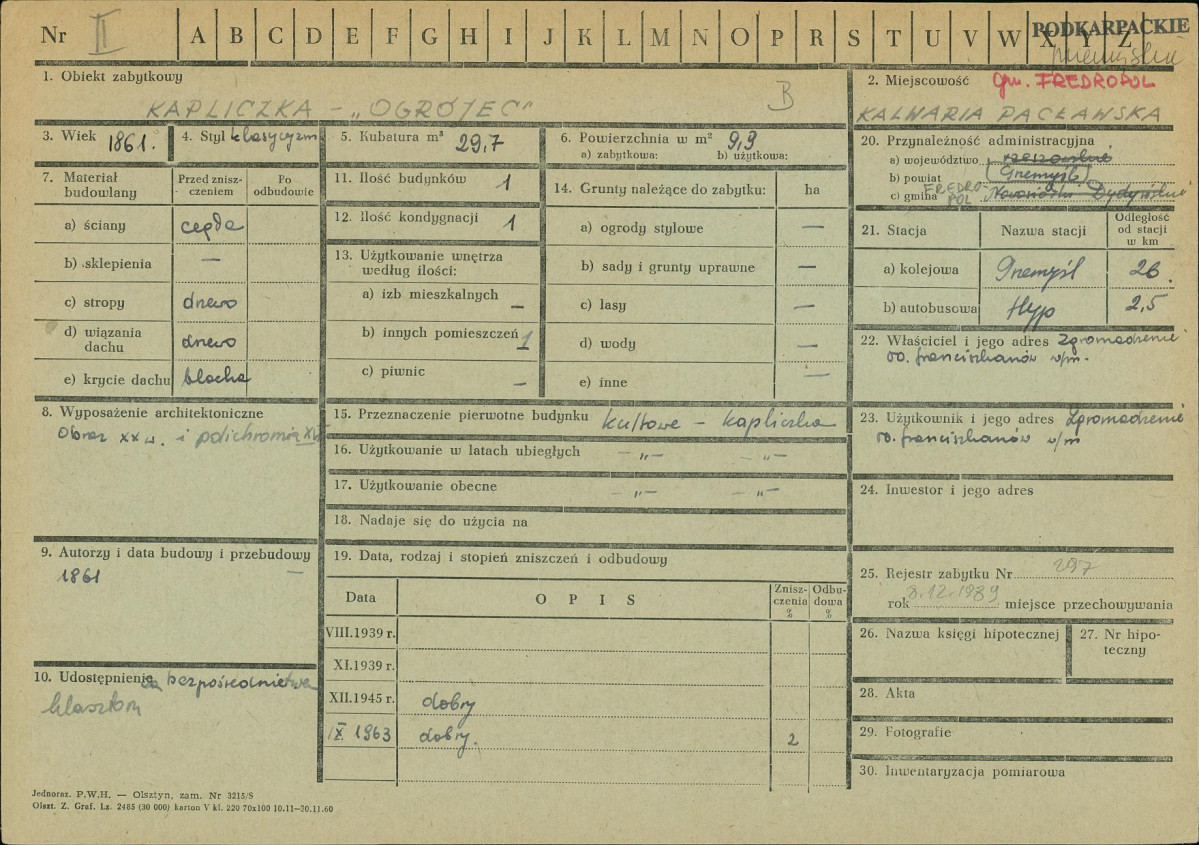 Nr II A B C D E F G H I J K L M N O P R S T U V W X Y Z
PODKARPACKIE
1. Obiekt zabytkowy
KAPLICZKA - „OGRÓJEC"
B
2. Miejscowość gm. FREDROPOL
KALWARIA PACŁAWSKA
3. Wiek 1861.
4. Styl klasycyzm
5. Kubatura m³ 29,7
6. Powierzchnia w m² 9,9
a) zabytkowa: b) użytkowa:
7. Materiał budowlany
Przed zniszczeniem
Po odbudowie
a) ściany cegła
b) sklepienia —
c) stropy drewo
d) wiązania dachu drewo
e) krycie dachu blacha
8. Wyposażenie architektoniczne
Obraz XX w. i polichromia
9. Autorzy i data budowy i przebudowy
1861 —
10. Udostępnienie za bezpośrednictwem
klasztoru
11. Ilość budynków 1
12. Ilość kondygnacji 1
13. Użytkowanie wnętrza
według ilości:
a) izb mieszkalnych —
b) innych pomieszczeń 1
c) piwnic —
14. Grunty należące do zabytku: ha
a) ogrody stylowe —
b) sady i grunty uprawne —
c) lasy —
d) wody —
e) inne —
15. Przeznaczenie pierwotne budynku kultowe - kapliczka
16. Użytkowanie w latach ubiegłych -„- -„-
17. Użytkowanie obecne -„- -„-
18. Nadaje się do użycia na
19. Data, rodzaj i stopień zniszczeń i odbudowy
Data
O P I S
Zniszczenia %
Odbudowa %
VIII.1939 r.
XI.1939 r.
XII.1945 r. dobry
IX. 1963 dobry. 2
20. Przynależność administracyjna
a) województwo rzeszowskie
b) powiat Przemyśl
c) gmina FREDROPOL
21. Stacja
Nazwa stacji
Odległość od stacji w km
a) kolejowa Przemyśl 26.
b) autobusowa Hyp 2,5
22. Właściciel i jego adres Zgromadzenie
oo. franciszkanów w/m.
23. Użytkownik i jego adres Zgromadzenie
oo. franciszkanów w/m
24. Inwestor i jego adres
25. Rejestr zabytku Nr 297
rok 8.12.1989 miejsce przechowywania
26. Nazwa księgi hipotecznej
27. Nr hipoteczny
28. Akta
29. Fotografie
30. Inwentaryzacja pomiarowa
Jednoraz. P.W.H. — Olsztyn, zam. Nr 3215/S
Olszt. Z. Graf. Lz. 2485 (30 000) karton V kl. 220 70x100 10.11—30.11.60